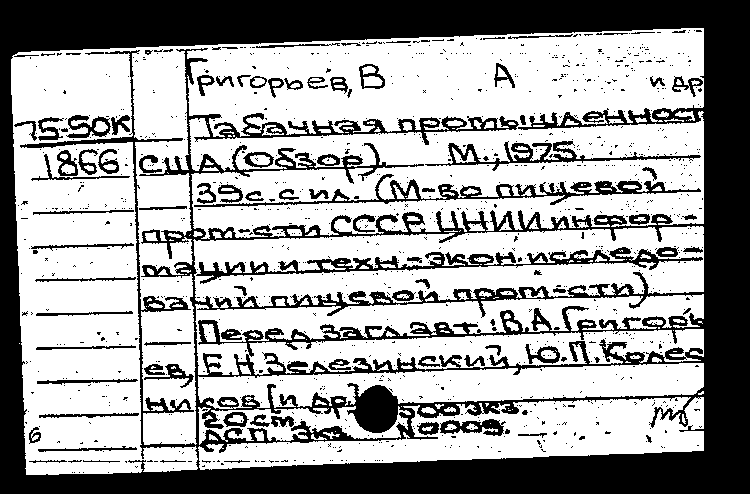 Григорьев, В А и др.
75-50К Табачная промышленност
1866 США. (Обзор). М., 1975.
39с. с ил. (М-во пищевой
пром-сти СССР. ЦНИИ инфор-
мации и техн.-экон. исследо-
ваний пищевой пром-сти)
Перед загл. авт.: В.А. Григорь
ев, Е.Н. Зелезинский, Ю.П. Колес
ников [и др.]
20 см. 500 экз.
экз. N 0009.
6